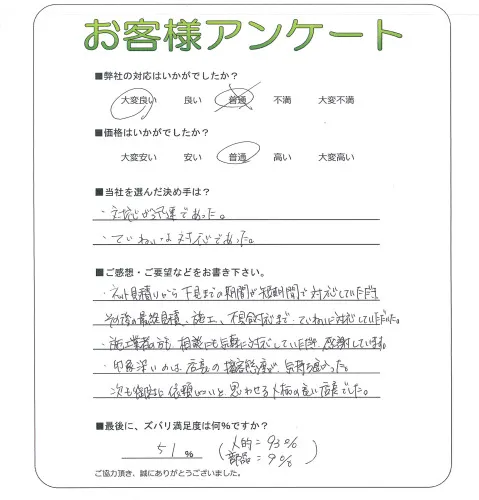 お客様アンケート
■弊社の対応はいかがでしたか?
大変良い 良い 普通 不満 大変不満
■価格はいかがでしたか?
大変安い 安い 普通 高い 大変高い
■当社を選んだ決め手は?
・対応が迅速であった。
・ていねいな対応であった。
■ご感想・ご要望などをお書き下さい。
・ネット見積りから下見までの期間が短期間で対応していただき
その後の最終見積、施工、不具合対応まで、ていねいに対応していただいた。
・施工業者の方も相談にも気軽に対応していただき、感謝しています。
・印象深いのは店長の接客態度が、気持ち良かった。
次も御社に依頼したいと思わせる人柄の良い店長でした。
■最後に、ズバリ満足度は何%ですか?
51 % (人的=93%
部品=9%)
ご協力頂き、誠にありがとうございました。